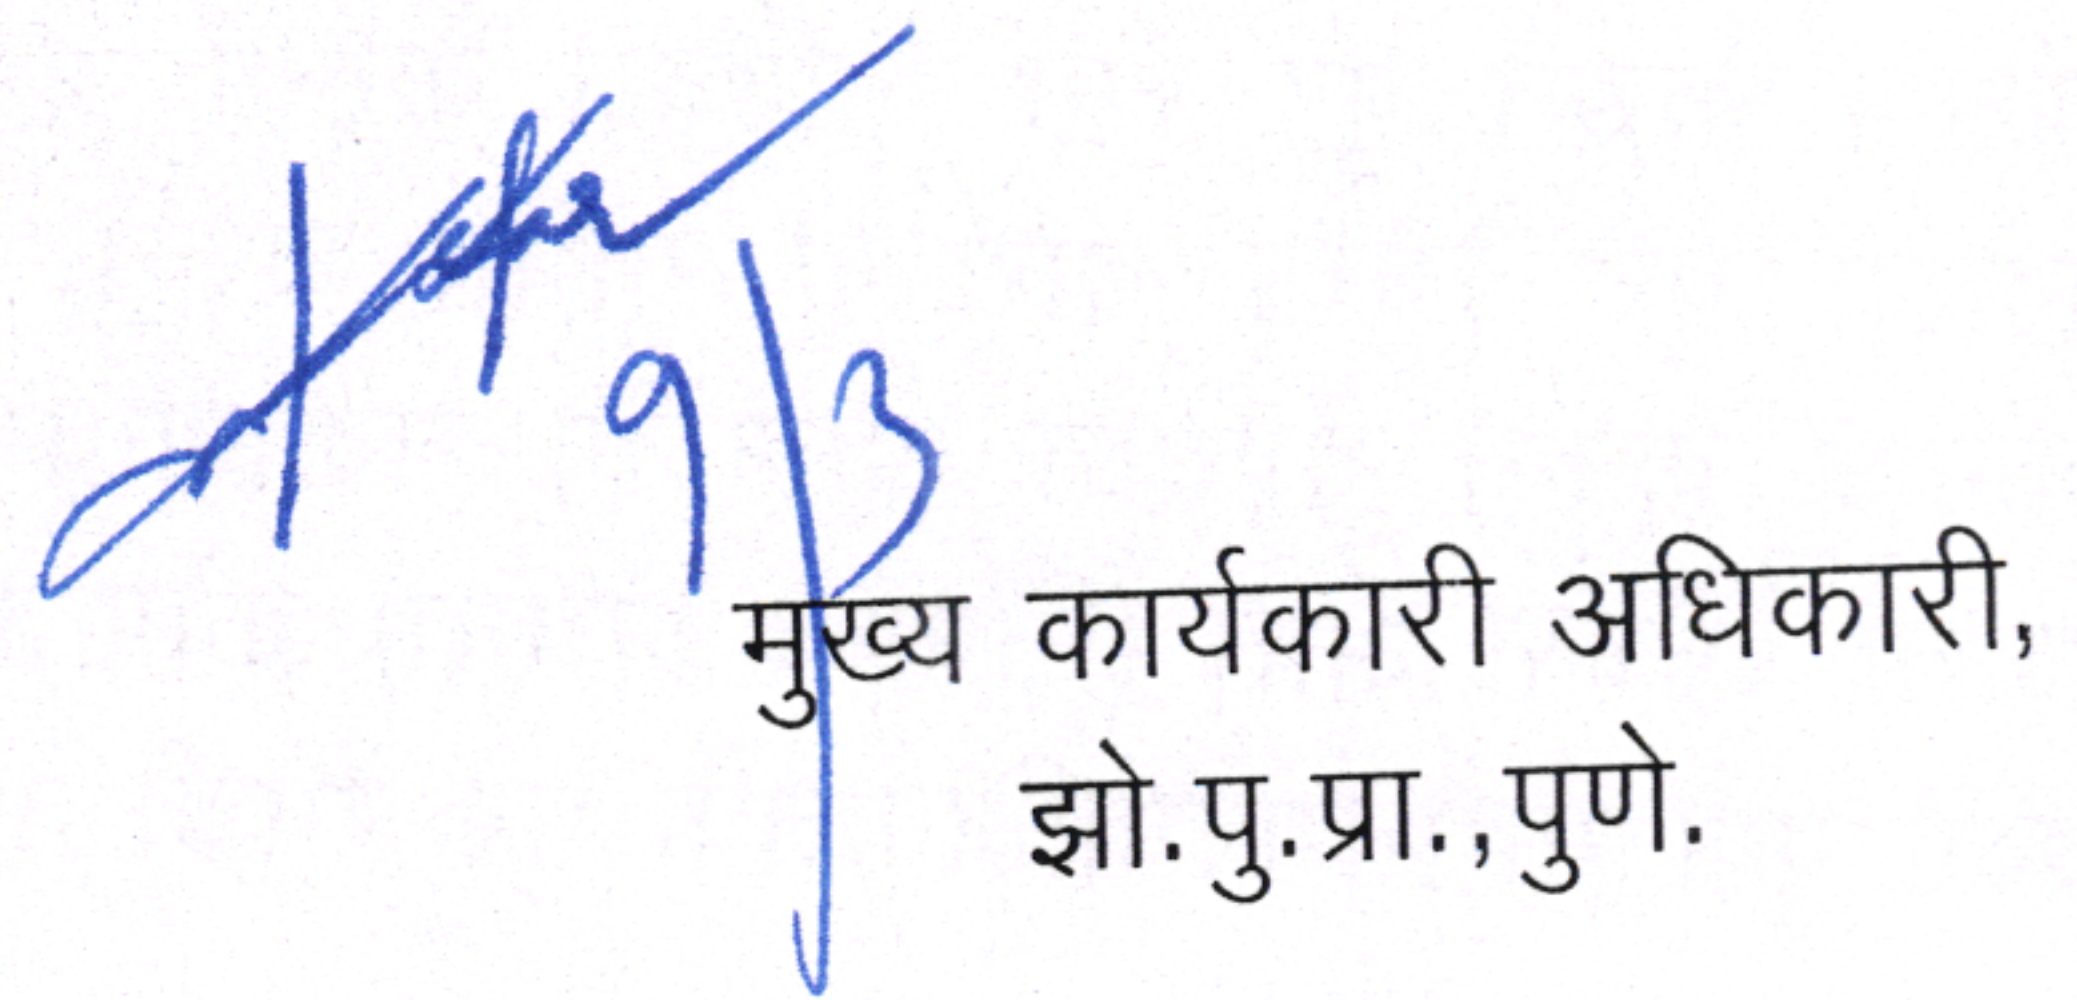 9/3
मुख्य कार्यकारी अधिकारी,
झो.पु.प्रा.,पुणे.